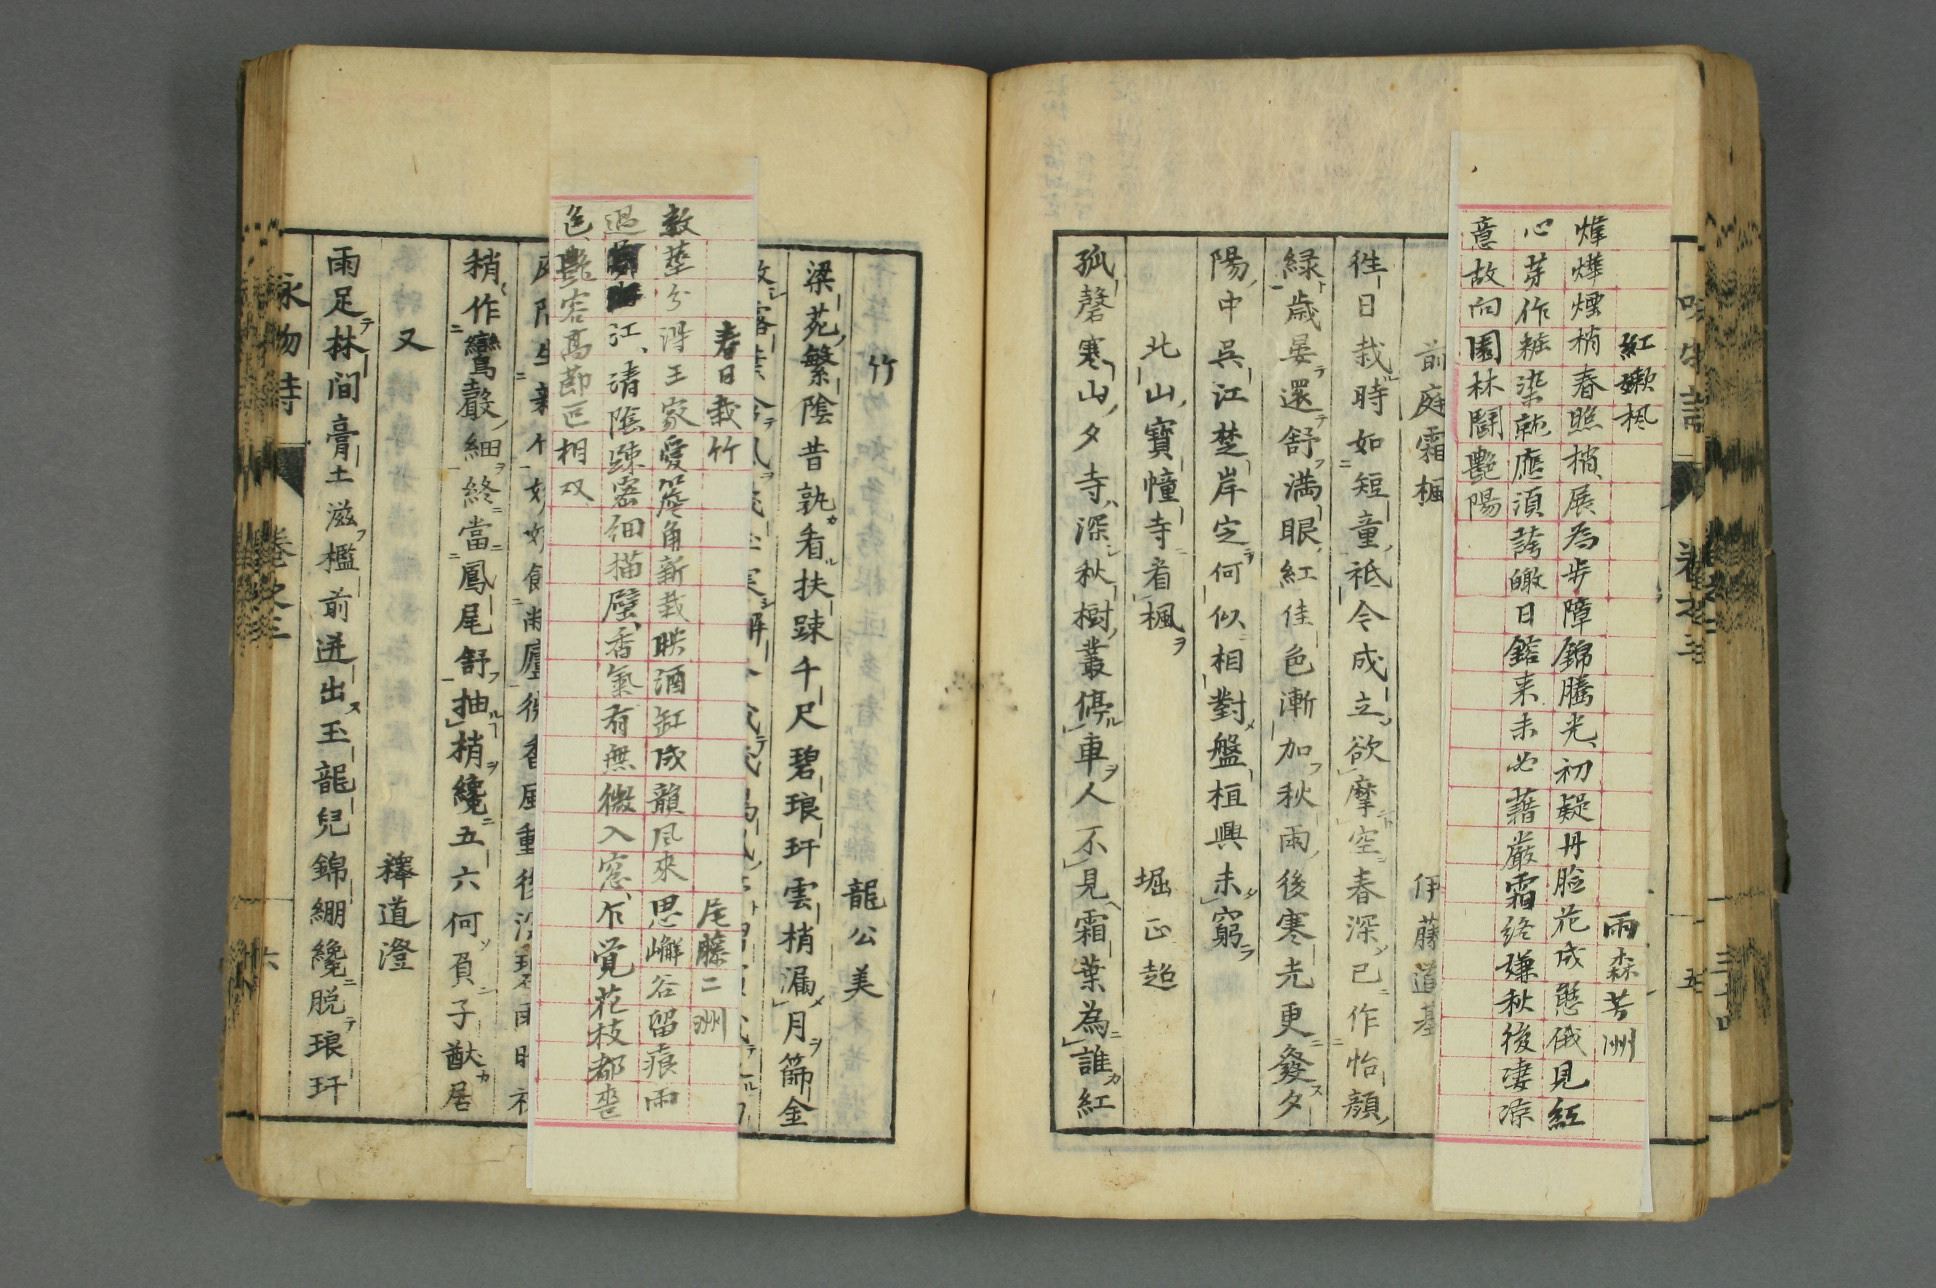 紅瀬楓
雨森芳洲
煒燁煙梢春照梢、展為步障錦騰光、初疑丹臉花成慙俄見紅
心芽作粧染乾應須誇曒日鎔来未必藉嚴霜終嫌秋後凄凉
意故向園林鬪艶陽
前庭霜楓
伊藤道基
徃日栽時如短童祗令成立欲摩空春深已作怡顔
緑歳晏還舒満眼紅佳色漸加秋雨後寒光更發夕
陽中呉江楚岸定何似相對盤桓興未窮
北山寶幢寺看楓
堀正超
孤磬寒山夕寺深秋樹叢停車人不見霜葉為誰紅
竹
龍公美
梁苑繁陰昔孰看扶踈千尺碧琅玕雲梢漏月篩金
春日栽竹
尾藤二洲
数莖分得王家愛簷角新栽映酒缸成韻風來思嶰谷留痕雨
過江、清陰踈密細描壁、香氣有無微入窓、乍覚花枝都喪
色、艶容高節叵相双
稍作鸞聲細終當鳳尾舒抽梢纔五六何負子猷居
又
釋道澄
雨足林間膏土滋檻前迸出玉龍兒錦綳纔脱琅玕
永物诗
卷之三
六